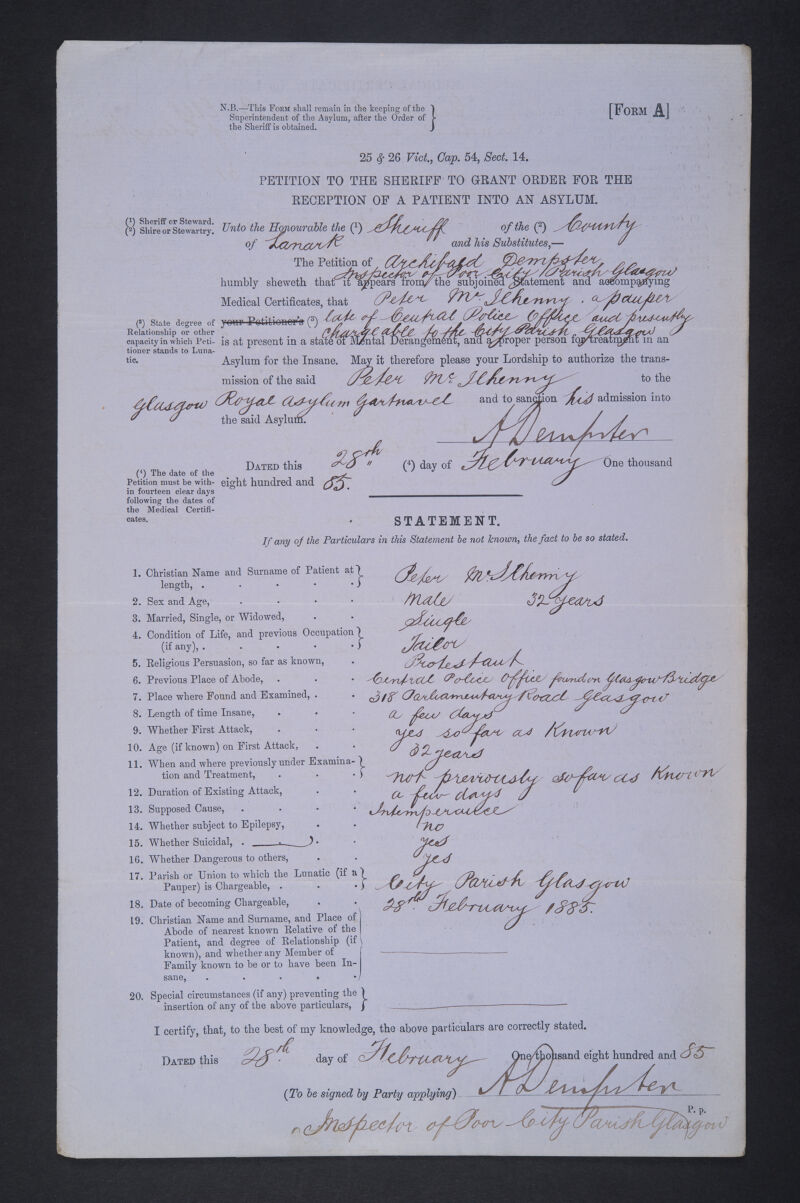 N.B.—This Form shall remain in the keeping of the
Superintendent of the Asylum, after the Order of
the Sheriff is obtained.
[Form A]
25 & 26 Vict., Cap. 54, Sect. 14.
PETITION TO THE SHERIFF TO GRANT ORDER FOR THE
RECEPTION OF A PATIENT INTO AN ASYLUM.
(1) Sheriff or Steward.
(2) Shire or Stewartry.
Unto the Honourable the (1) Sheriff of the (2) County
of Lanark and his Substitutes,—
The Petition of Archibald Dempster
Inspector of Poor City Parish Glasgow
humbly sheweth that it appears from the subjoined Statement and accompanying
Medical Certificates, that Peter McIlhenny . a pauper
(3) State degree of
Relationship or other
capacity in which Peti-
tioner stands to Luna-
tic.
your Petitioner's (3) late of Central Police Office and presently
chargeable to the City Parish, Glasgow
is at present in a state of Mental Derangement, and a proper person for treatment in an
Asylum for the Insane. May it therefore please your Lordship to authorize the trans-
mission of the said Peter McIlhenny to the
Glasgow Royal Asylum Gartnavel and to sanction his admission into
the said Asylum.
A Dempster
(4) The date of the
Petition must be with-
in fourteen clear days
following the dates of
the Medical Certifi-
cates.
Dated this 28th (4) day of February One thousand
eight hundred and 85.
STATEMENT.
If any of the Particulars in this Statement be not known, the fact to be so stated.
1. Christian Name and Surname of Patient at
length, . Peter McIlhenny
2. Sex and Age, Male 32 years
3. Married, Single, or Widowed, Single
4. Condition of Life, and previous Occupation
(if any), . Tailor
5. Religious Persuasion, so far as known, Protestant
6. Previous Place of Abode, . Central Police Office found on Glasgow Bridge
7. Place where Found and Examined, . 318 Parliamentary Road Glasgow
8. Length of time Insane, a few days
9. Whether First Attack, yes so far as Known
10. Age (if known) on First Attack, 32 years
11. When and where previously under Examina-
tion and Treatment, not previously so far as Known
12. Duration of Existing Attack, a few days
13. Supposed Cause, Intemperance
14. Whether subject to Epilepsy, no
15. Whether Suicidal, . yes
16. Whether Dangerous to others, yes
17. Parish or Union to which the Lunatic (if a
Pauper) is Chargeable, . City Parish Glasgow
18. Date of becoming Chargeable, 28th February 1885.
19. Christian Name and Surname, and Place of
Abode of nearest known Relative of the
Patient, and degree of Relationship (if
known), and whether any Member of
Family known to be or to have been In-
sane,
20. Special circumstances (if any) preventing the
insertion of any of the above particulars,
I certify, that, to the best of my knowledge, the above particulars are correctly stated.
Dated this 28th day of February One thousand eight hundred and 85
(To be signed by Party applying) A Dempster
P. p.
Inspector of Poor City Parish Glasgow